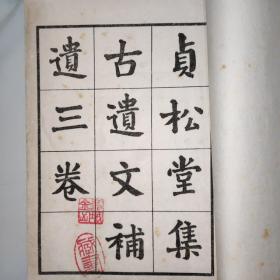 貞松堂集
古遺文補
遺三卷